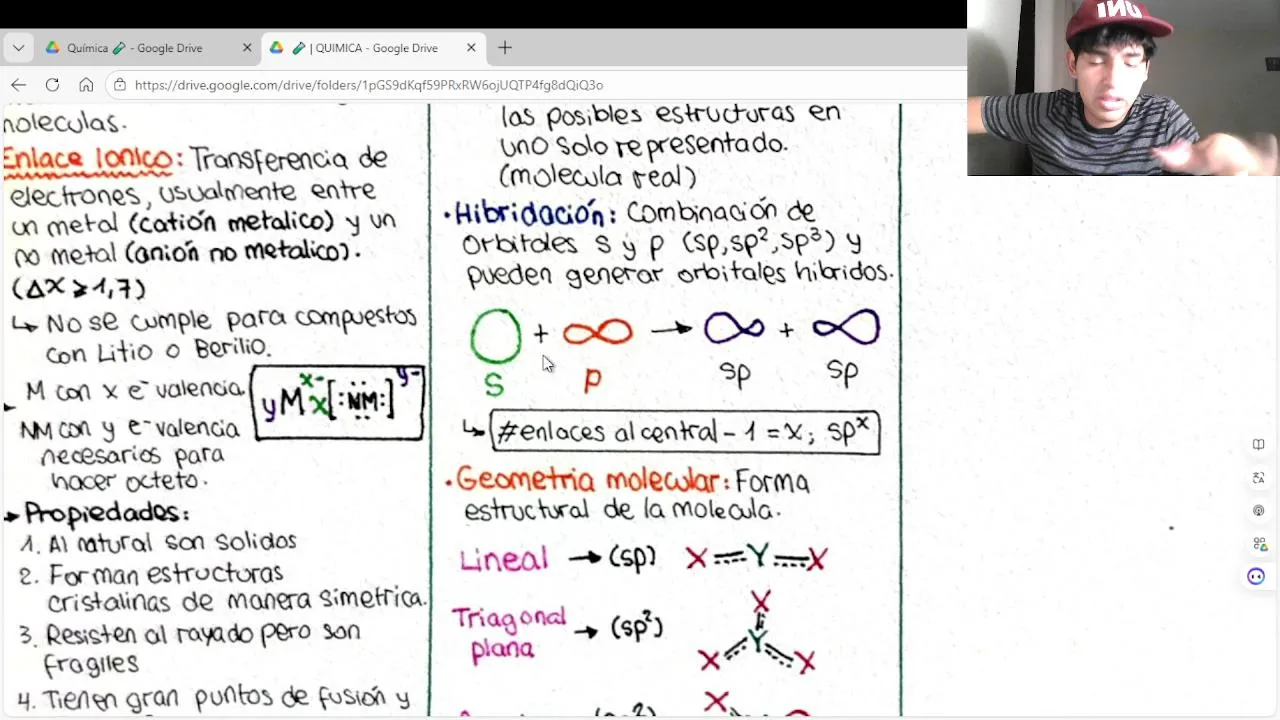 Química - Google Drive
| QUIMICA - Google Drive
https://drive.google.com/drive/folders/1pGS9dKqf59PRxRW6ojUQTP4fg8dQiQ3o
UNI
moleculas.
Enlace Ionico: Transferencia de
electrones, usualmente entre
un metal (catión metalico) y un
no metal (anión no metalico).
(ΔX ⩾ 1,7)
↳ No se cumple para compuestos
con Litio o Berilio.
M con x e⁻ valencia
NM con y e⁻ valencia
necesarios para
hacer octeto.
yM x- x[:NM:] y-
→ Propiedades:
1. Al natural son solidos
2. Forman estructuras
cristalinas de manera simetrica.
3. Resisten al rayado pero son
fragiles
4. Tienen gran puntos de fusión y
las posibles estructuras en
uno solo representado.
(molecula real)
• Hibridación: Combinación de
orbitales s y p (sp, sp², sp³) y
pueden generar orbitales hibridos.
+ → +
S p sp sp
↳ #enlaces al central - 1 = x; spˣ
• Geometria molecular: Forma
estructural de la molecula.
Lineal → (sp) X Y X
Triagonal
plana → (sp²)
X
Y
X X
X